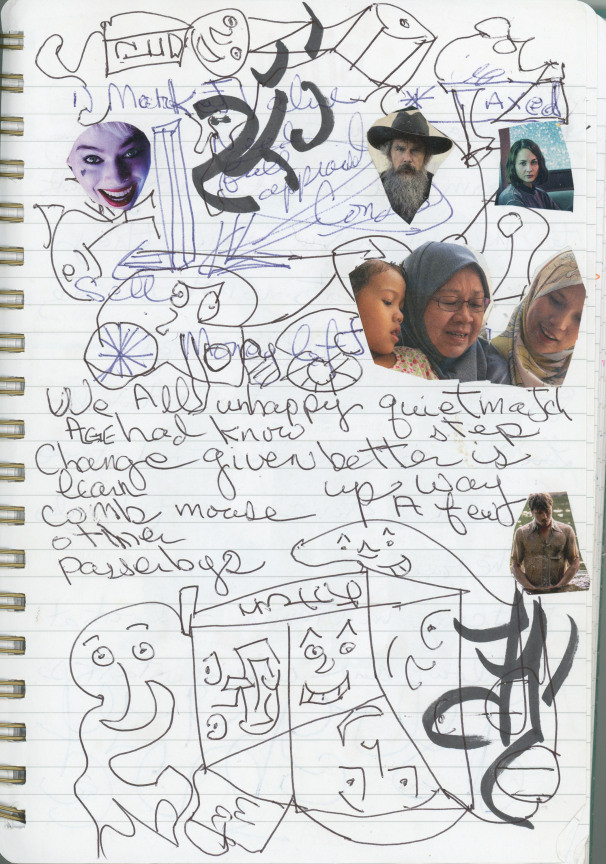 1) Mark Value
Axed
full
appraisal
Cond
Sell
Money left
We All unhappy quiet match
AGE had know step
Change given better is
learn up way
comb mouse A feet
other
passerbys